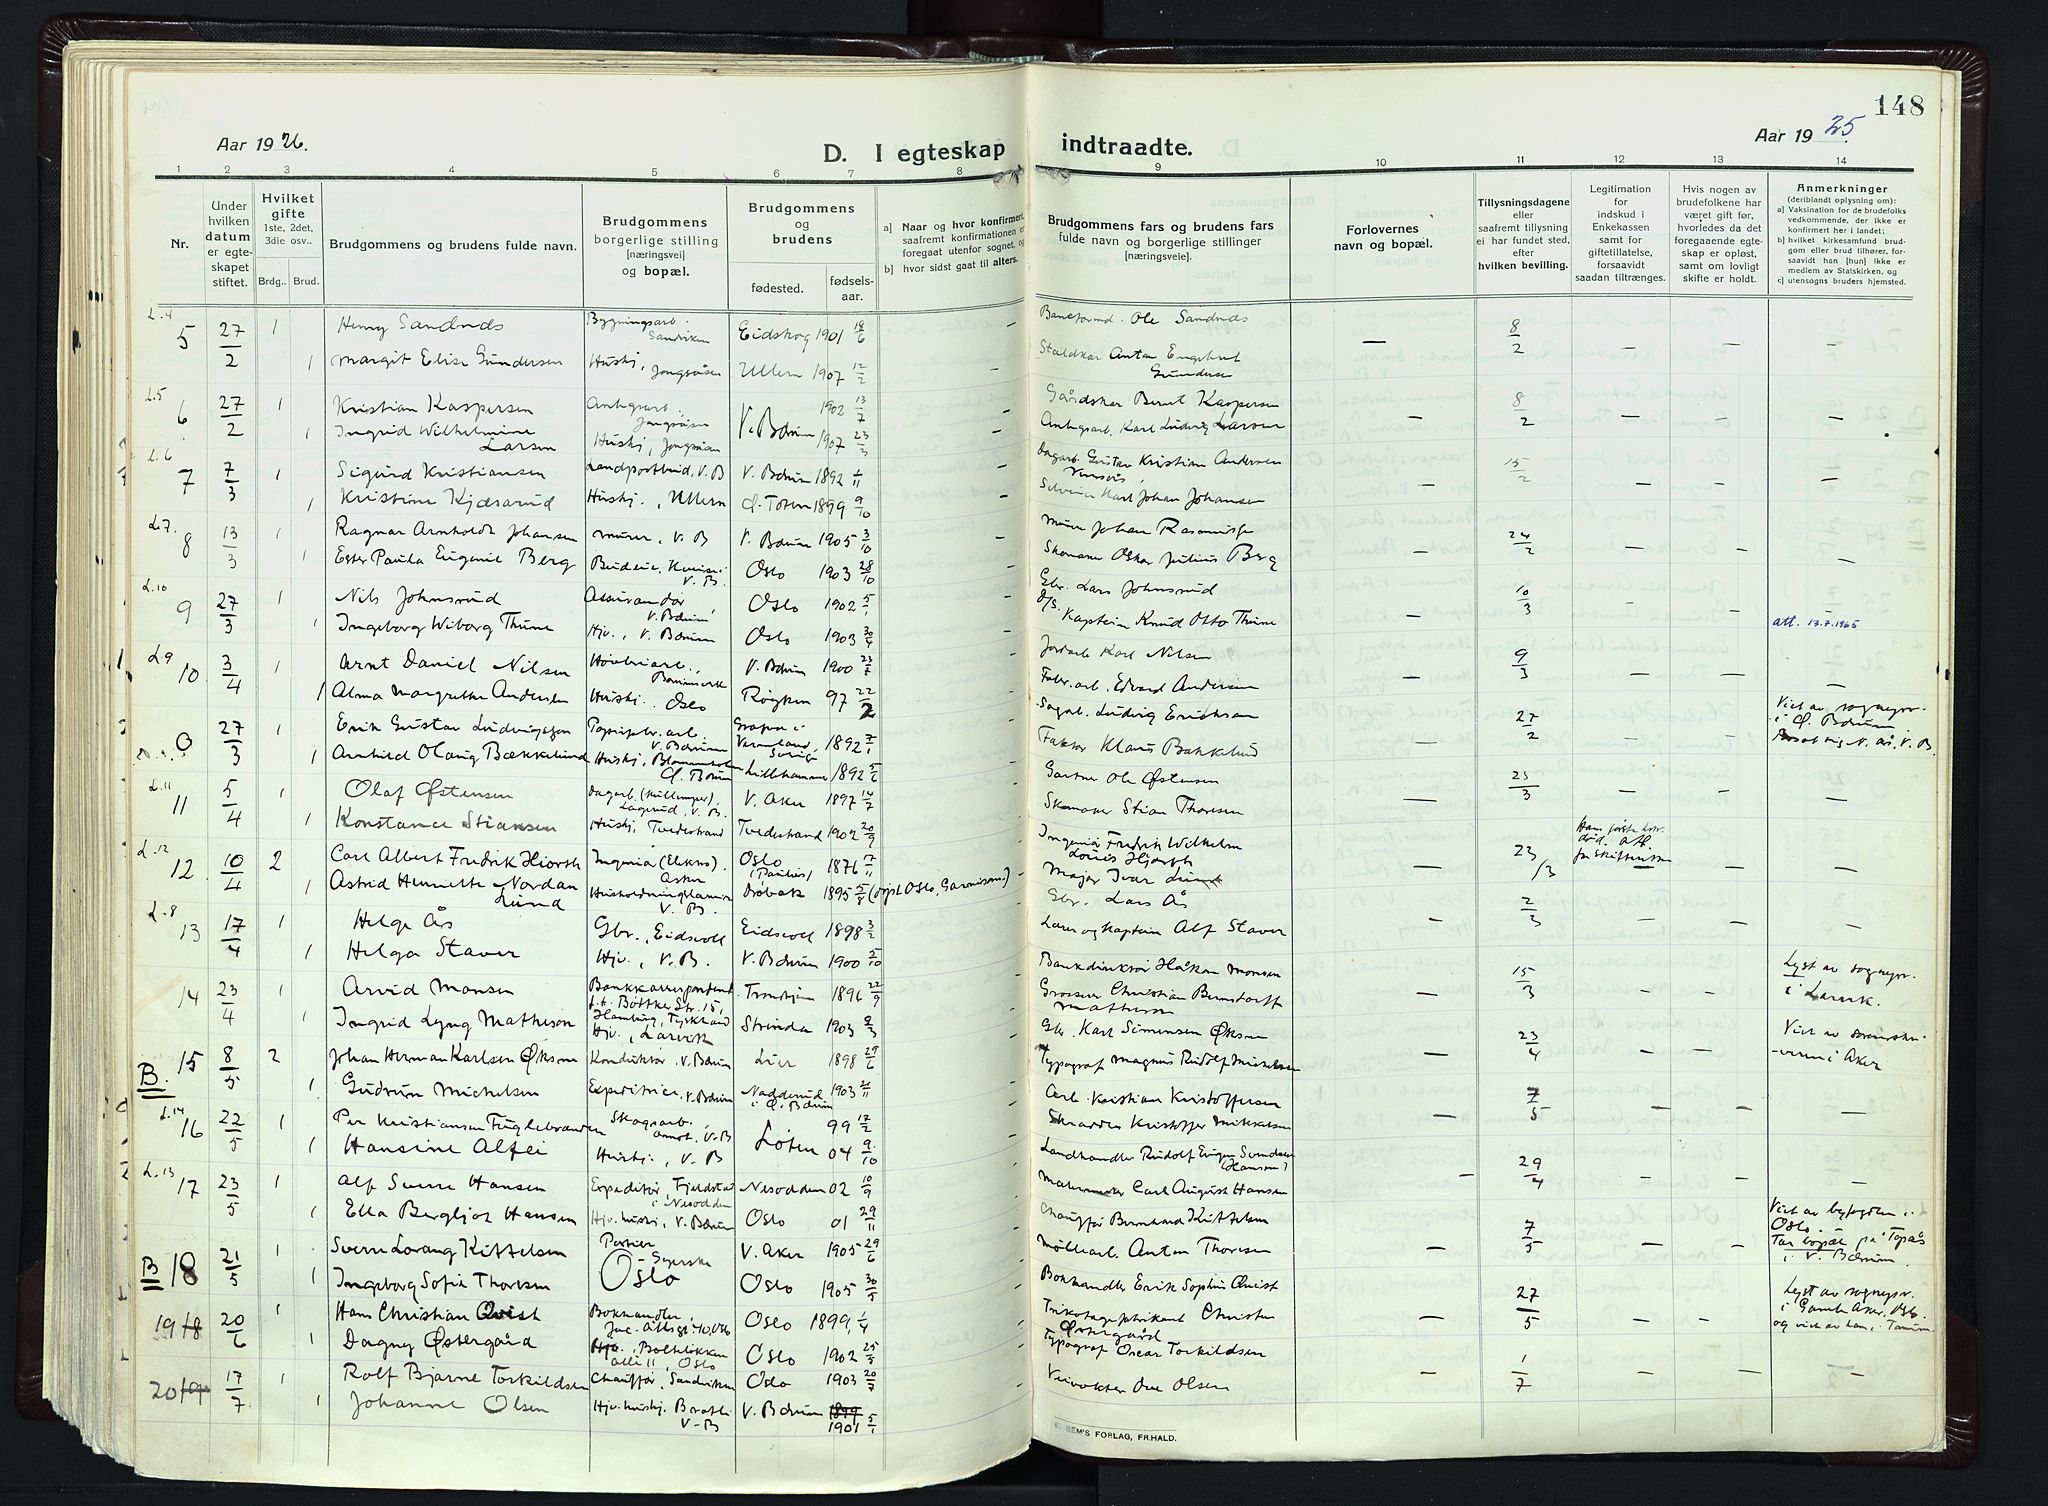 148
Aar 1926.
D. I egteskap indtraadte.
Aar 1925.
1 2 3 4 5 6 7 8 9 10 11 12 13 14
Nr.
Under hvilken datum er egteskapet stiftet.
Hvilket gifte 1ste, 2det, 3die osv..
Brdg.. Brud.
Brudgommens og brudens fulde navn.
Brudgommens borgerlige stilling [næringsvei] og bopæl.
Brudgommens og brudens
fødested.
fødsels-aar.
a) Naar og hvor konfirmert, saafremt konfirmationen er foregaat utenfor sognet, og
b) hvor sidst gaat til alters.
Brudgommens fars og brudens fars fulde navn og borgerlige stillinger [næringsveie].
Forlovernes navn og bopæl.
Tillysningsdagene eller saafremt tillysning ei har fundet sted, efter hvilken bevilling.
Legitimation for indskud i Enkekassen samt for giftetillatelse, forsaavidt saadan tiltrænges.
Hvis nogen av brudefolkene har været gift før, hvorledes da det foregaaende egteskap er opløst, samt om lovligt skifte er holdt.
Anmerkninger (deriblandt oplysning om):
a) Vaksination for de brudefolks vedkommende, der ikke er konfirmert her i landet;
b) hvilket kirkesamfund brudgom eller brud tilhører, forsaavidt han [hun] ikke er medlem av Statskirken, og
c) utensogns bruders hjemsted.
L.4 5 27/2 1 Henry Sandnds Bygningsarb. Sandviken Eidskog 1901 18/6 — Baneformd. Ole Sandnds — 8/2 — — —
1 Margit Elise Gundersen Hushj, Jongsåsen Ullern 1907 12/2 — Staldkar Anton Engebret Gundersen
L.5 6 27/2 1 Kristian Kaspersen Anlegsarb., Jongsåsen V. Bærum 1902 13/7 — Gårdskar Bernt Kaspersen — 8/2 — — —
1 Ingrid Wilhelmine Larsen Hushj, Jongsåsen 1907 23/3 — Anlegsarb. Karl Ludvig Larsen
L.6 7 7/3 1 Sigurd Kristiansen Landpostbud, V. B V. Bærum 1892 1/11 — Dagarb. Gustav Kristian Andersen — 15/2 — — —
1 Kristine Kjæsarud Hushj., Ullern Ø. Toten 1899 9/10 — Karl Johan Johansen
L.7. 8 13/3 1 Ragnar Arnholdt Johansen murer, V. B V. Bærum 1905 3/10 — Murer Johan Rasmus — 24/2 — — —
1 Ester Paula Eugenie Berg V. B. Oslo 1903 28/10 Skomaker Oskar Julius Berg
L.10 9 27/3 1 Nils Johnsrud Assurandør, V. Bærum Oslo 1902 5/1 Gbr. Lars Johnsrud — 10/3 — — att. 13.7.1965
1 Ingeborg Wiborg Thune Hjv., V. Bærum Oslo 1903 30/4 Kaptein Knud Otto Thune
L.9 10 3/4 1 Arnt Daniel Nilsen V. Bærum 1900 23/7 Karl Nilsen — 9/3 — — —
1 Alma Margrethe Andersen Hushj. Oslo Røyken 97 22/2 Fabr.arb. Edvard Andersen
0 27/3 1 Erik Gustav Ludvigsen Papirfabr. arb. V. Bærum Värmland, Sverige 1892 7/1 Sagarb. Ludvig Erickson — 27/2 — — Viet av sognepr. i Ø. Bærum
1 Arnhild Olaug Bækkelund Hushj, Blommenholm Ø. Bærum Lillehammer 1892 5/6 Faktor Klaus Bækkelund
L.11 11 5/4 1 Olaf Østensen V. B. V. Aker 1897 14/7 Gartner Ole Østensen — 25/3 — — —
1 Konstance Stiansen Hushj, Tvedestrand Tvedestrand 1902 20/9 Skomaker Stian Thoresen
L.12 12 10/4 2 Carl Albert Fredrik Hiorth Ingeniør (Elektro). Asker Oslo (Paulus) 1876 7/11 Ingeniør Fredrik Wilhelm Louis Hjorth — 23/3 —
1 Astrid Henriette Nordan Lund V. B. Drøbak 1895 5/8 (opl. Oslo, Garnisons.) — Major Ivar Lund
L.8 13 17/4 1 Helge Ås Gbr., Eidsvoll Eidsvoll 1898 3/2 Gbr. Lars Ås — 2/3 — — —
1 Helga Staver Hjv., V. B. V. Bærum 1900 5/10 Lærer og Kaptein Alf Staver
14 23/4 1 Arvid Monsen Bankkorrespondent, Böttker Str. 15, Hamburg, Tyskland Trondhjem 1896 22/9 Bankdirektør Håkan Monsen — 15/3 — — Lyst av sognepr. i Larvik.
1 Ingrid Lyng Mathiesen Hjv., Larvik Strinda 1903 9/3 Grosserer Christian Bernstorff Mathiesen
B. 15 8/5 2 Johan Herman Karlsen Øksne Konduktør, V. Bærum Lier 1898 29/6 Gbr. Karl Simensen Øksne — 23/4 — — Viet av sorenskriveren i Aker
1 Gudrun Michelsen Expeditrice, V. Bærum Nadderud i Ø. Bærum 1903 21/11 Typograf Magnus Rudolf Michelsen
L.14 16 22/5 1 Per Kristiansen Fuglebranden Skogsarb., V. B Løten 99 17/2 Arb. Kristian Kristoffersen — 7/5 — — —
1 Hansine Alfei Hushj., V. B 04 9/10 Skrædder Kristoffer Mikkelsen
L.13 17 23/5 1 Alf Sverre Hansen Expeditør, Fjeldstad i Nesodden Nesodden 02 10/9 Landhandler Rudolf Eugen Svendsen (Hansen) — 29/4 — — —
1 Ella Bergljot Hansen Hjv. hushj., V. Bærum Oslo 01 29/11 Malermester Carl August Hansen
B 18 21/5 1 Sverre Lorang Kittelsen Portier V. Aker 1905 29/6 Chauffør Bernhard Kittelsen — 7/5 — — Viet av byfogden i Oslo. Tar bopæl på Topås i V. Bærum.
1 Ingeborg Sofie Thoresen Syerske Oslo Oslo 1905 30/5 Møllearb. Anton Thoresen
19 18 20/6 1 Hans Christian Qvist Bokhandler, Oslo 1899, 1/4 Bokhandler Erik Sophus Qvist — 27/5 — — Lyst av sognepr. i Gamle Aker, Oslo og viet av ham i Tanum.
1 Dagny Østergård Hjv., Bolteløkken allé 11, Oslo Oslo 1902 25/5 Trikotagefabrikant Christen Østergård
20 19 17/7 1 Rolf Bjarne Torkildsen Chauffør, Sandviken Oslo 1903 20/7 Typograf Oscar Torkildsen — 1/7 — — —
1 Johanne Olsen Hjv. hushj. Bratli V. B V. Bærum 1899 1901 5/1 Veivokter Ove Olsen
FORLAG, FR.HALD.